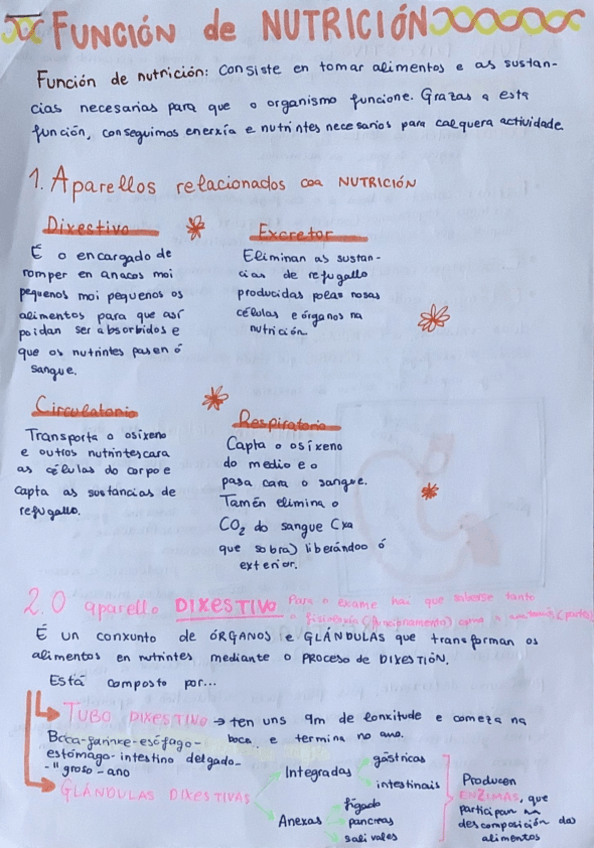 FUNCIÓN de NUTRICIÓN
Función de nutrición: Consiste en tomar alimentos e as sustan-
cias necesarias para que o organismo funcione. Grazas a esta
función, conseguimos enerxía e nutrintes necesarios para calquera actividade.
1. Aparellos relacionados coa NUTRICIÓN
Dixestivo
É o encargado de
romper en anacos moi
pequenos moi pequenos os
alimentos para que así
poidan ser absorbidos e
que os nutrintes pasen ó
sangue.
Excretor
Eliminan as sustan-
cias de refugallo
producidas polas nosas
células e órganos na
nutrición.
Circulatorio
Transporta o osíxeno
e outros nutrintes cara
as células do corpo e
capta as sustancias de
refugallo.
Respiratorio
Capta o osíxeno
do medio e o
pasa cara o sangue.
Tamén elimina o
CO2 do sangue (xa
que sobra) liberándoo ó
exterior.
2. O aparello DIXESTIVO Para o exame hai que saberse tanto
a fisioloxía (funcionamento) como a anatomía (partes)
É un conxunto de ÓRGANOS e GLÁNDULAS que transforman os
alimentos en nutrintes mediante o PROCESO de DIXESTIÓN.
Está composto por...
TUBO DIXESTIVO → ten uns 9m de lonxitude e comeza na
boca e termina no ano.
Boca-farinxe-esófago-
estómago-intestino delgado-
-" groso-ano
GLÁNDULAS DIXESTIVAS
Integradas
gástricas
intestinais
Anexas
fígado
páncreas
salivales
Producen
ENZIMAS, que
participan na
descomposición dos
alimentos